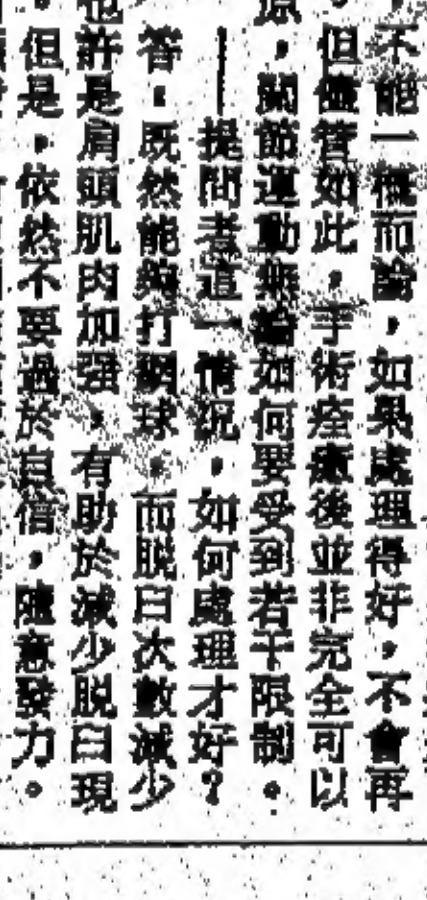 不能一概而論，如果處理得好，不會再
但儘管如此，手術痊癒後並非完全可以
原，關節運動無論如何要受到若干限制。
——提問者這一情況，如何處理才好？
答：既然能夠打網球，而脫臼次數減少
也許是肩頭肌肉加强，有助於減少脫臼現
。但是，依然不要過於自信，隨意發力。